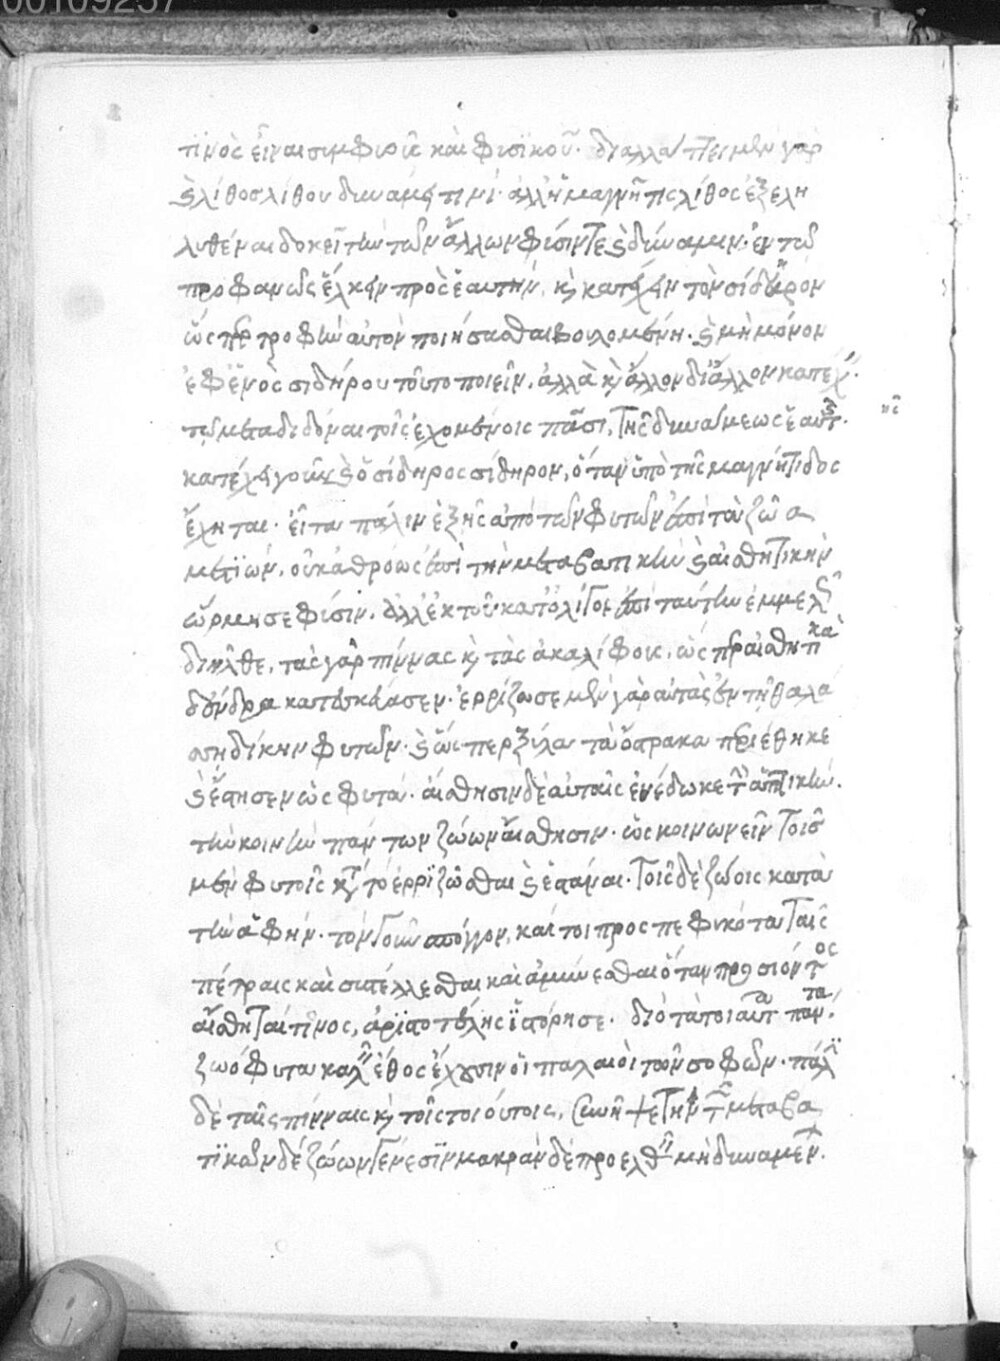 00109257
τινὸς εἶναι συμφυοῦς καὶ φυσικοῦ. διαλλάττει μὲν γὰρ
καὶ λίθος λίθου δυνάμει τινί. ἀλλ' ἡ μαγνῆτις λίθος ἐξελη
λυθέναι δοκεῖ τὴν τῶν ἄλλων φύσιν τε καὶ δύναμιν. ἐν τῷ
προφανῶς ἕλκειν πρὸς ἑαυτὴν, καὶ κατέχειν τὸν σίδηρον
ὥσπερ τροφὴν αὐτὸν ποιήσασθαι βουλομένη. καὶ μὴ μόνον
ἐφ' ἑνὸς σιδήρου τοῦτο ποιεῖν, ἀλλὰ καὶ ἄλλον δι' ἄλλου κατέχει.
τῷ μεταδιδόναι τοῖς ἐχομένοις πᾶσι, τῆς δυνάμεως ἑαυτ
ῆς
κατέχει γοῦν καὶ ὁ σίδηρος σίδηρον, ὅταν ὑπὸ τῆς μαγνήτιδος
ἕληται. εἶτα πάλιν ἑξῆς ἀπὸ τῶν φυτῶν ἐπὶ τὰ ζῶα
μετιὼν, οὐκ ἀθρόως ἐπὶ τὴν μεταβατικὴν καὶ αἰσθητικὴν
ὥρμησε φύσιν. ἀλλ' ἐκ τοῦ κατ' ὀλίγον ἐπὶ ταύτην ἐμμελῶς
διῆλθε, τὰς γὰρ πίννας καὶ τὰς ἀκαλίφας, ὡς περ αἰσθητικὰ
δένδρα κατεσκεύασεν. ἐρρίζωσε μὲν γὰρ αὐτὰς ἐν τῇ θαλά
σσῃ δίκην φυτῶν. καὶ ὥσπερ ξύλα τὰ ὄστρακα περιέθηκε
καὶ ἔστησεν ὡς φυτά. αἴσθησιν δὲ αὐταῖς ἐνέδωκε τὴν ἁπτικὴν.
τὴν κοινὴν πάντων ζώων αἴσθησιν. ὡς κοινωνεῖν τοῖς
μὲν φυτοῖς κατὰ τὸ ἐρριζῶσθαι καὶ ἑστάναι. τοῖς δὲ ζώοις κατὰ
τὴν ἁφήν. τὸν γοῦν σπόγγον, καίτοι προσπεφυκότα ταῖς
πέτραις καὶ συστέλλεσθαι καὶ ἀμύνεσθαι ὅταν προσιόντος
αἴσθηταί τινος, ἀριστοτέλης ἱστόρησε. διὸ τὰ τοιαῦτα πάντα
ζωόφυτα καλεῖν ἔθος ἔχουσιν οἱ παλαιοὶ τῶν σοφῶν. πάλιν
δὲ ταῖς πίνναις καὶ τοῖς τοιούτοις, συνῆψε τὴν τῶν μεταβα
τικῶν δὲ ζώων γένεσιν μακρὰν δὲ προελθεῖν μὴ δυναμένων.